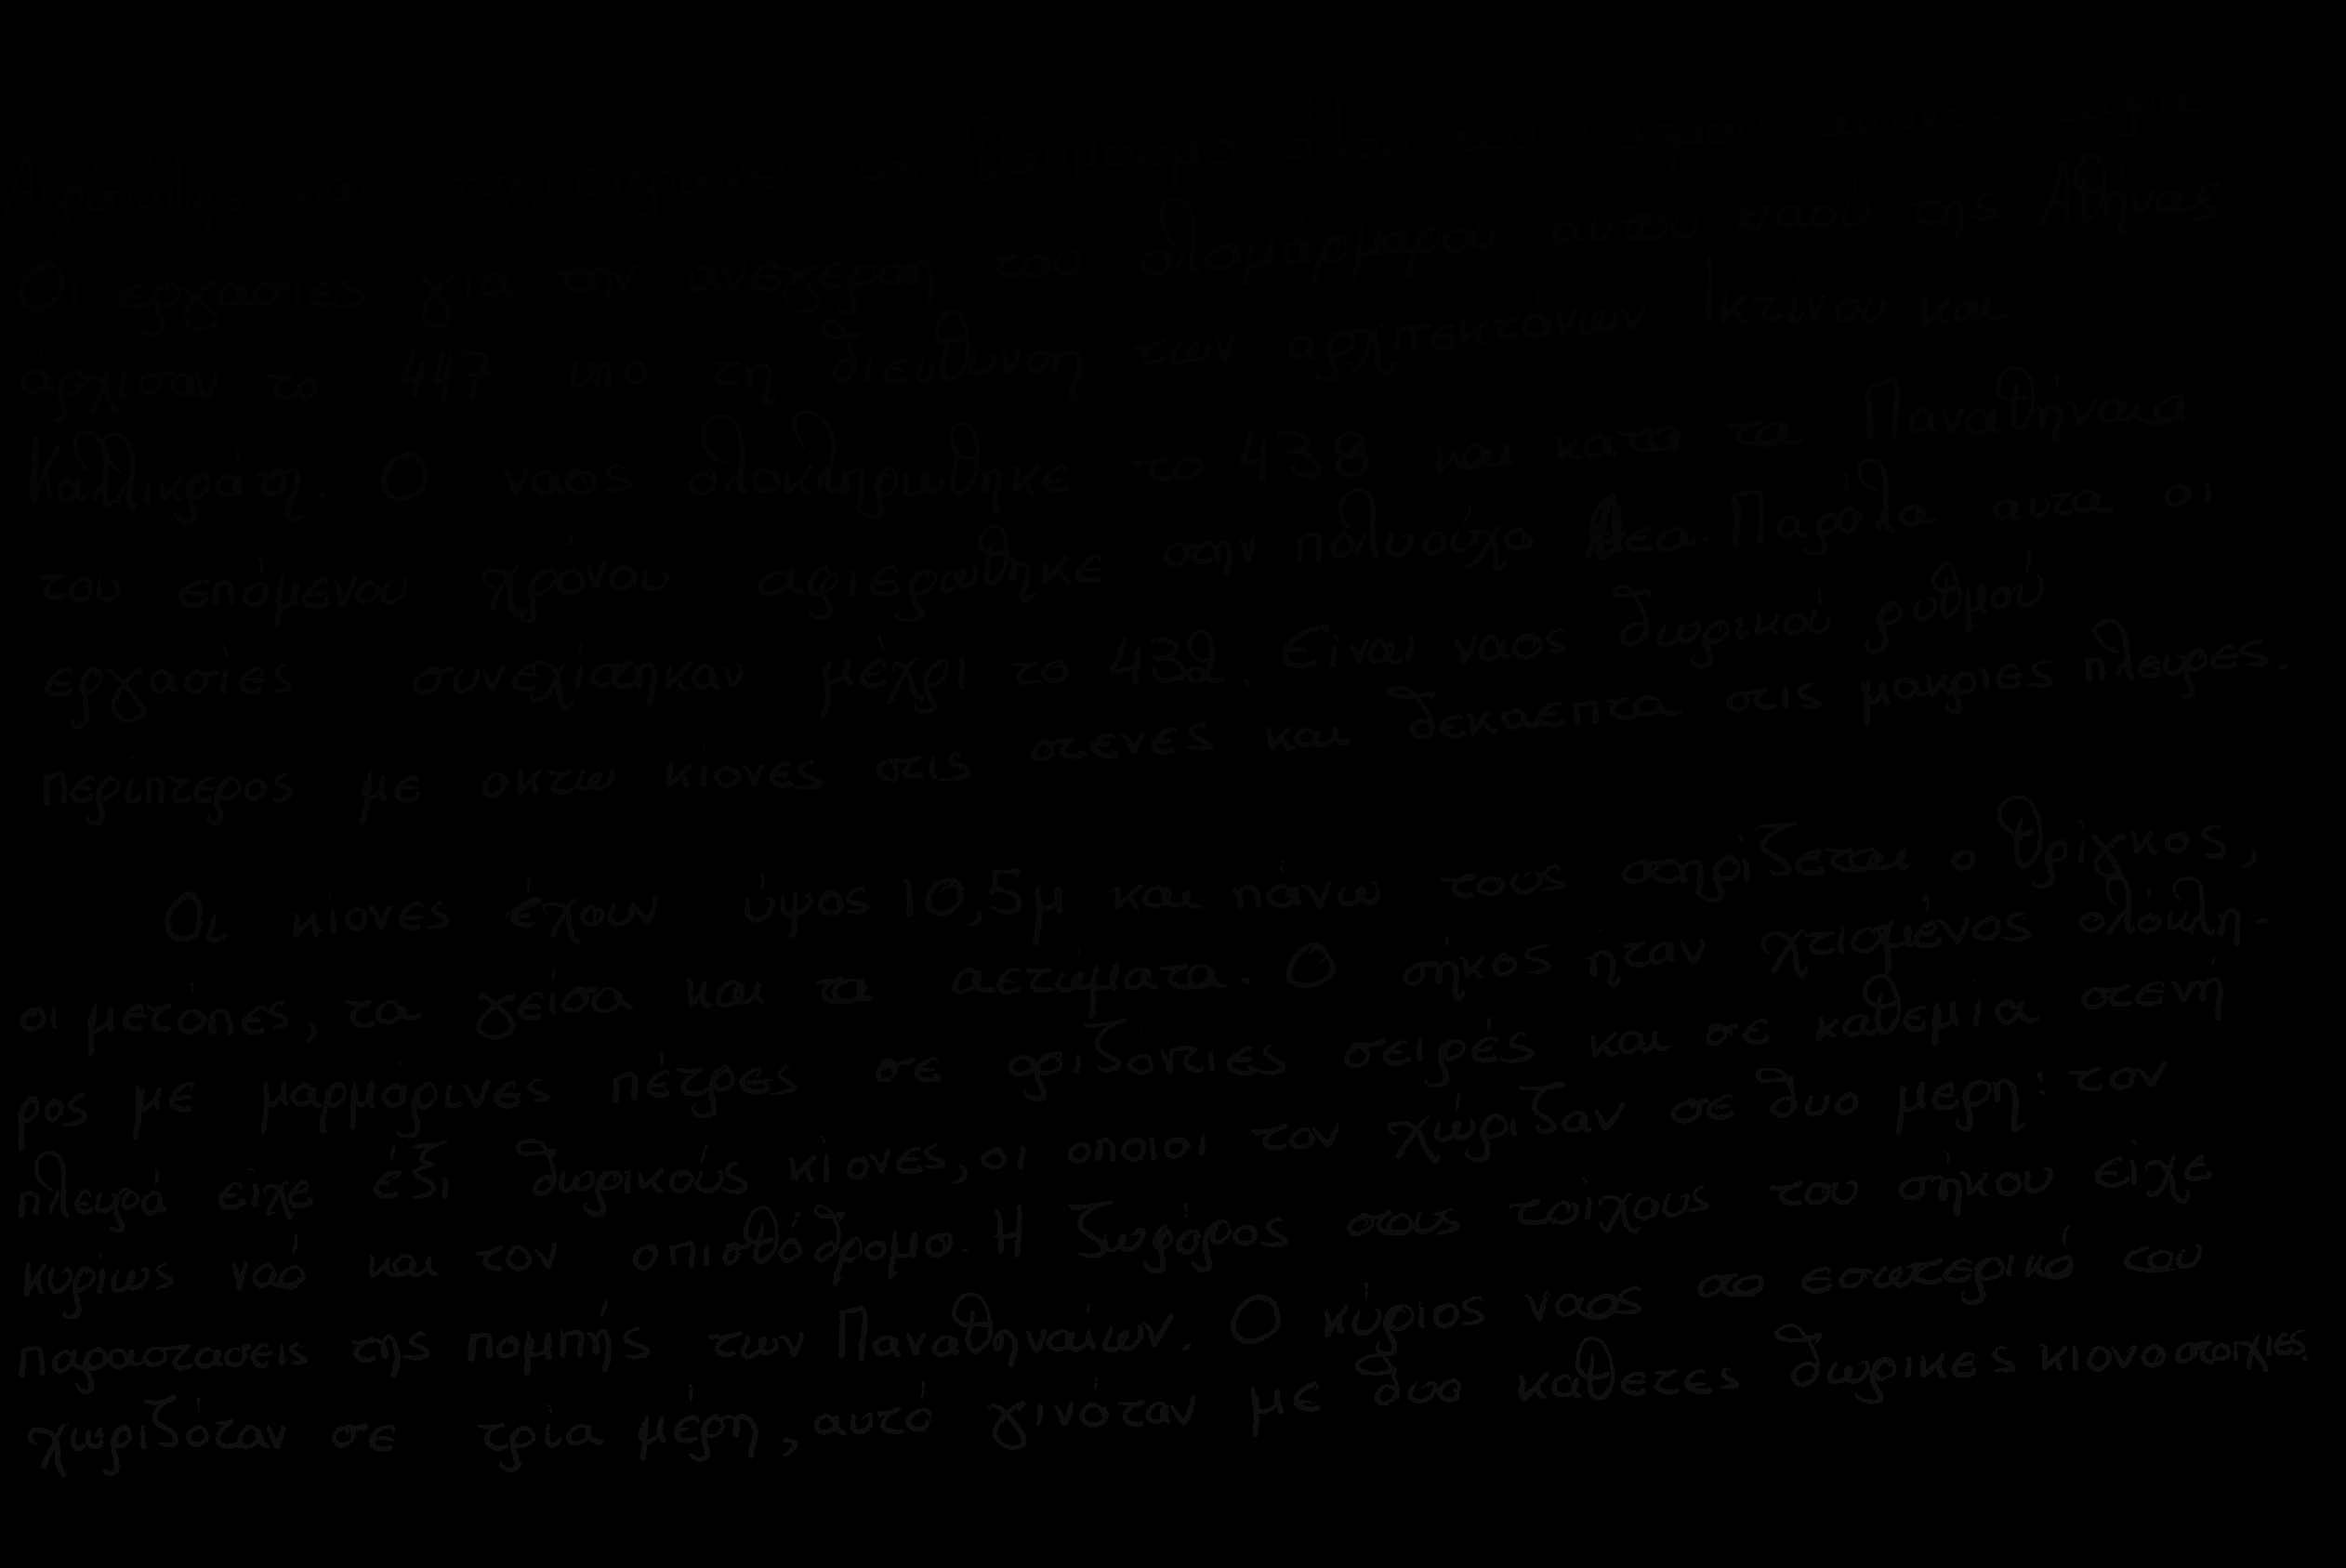 Ο Παρθενώνας είναι το μεγαλύτερο και επισημότερο οικοδόμημα της
Ακρόπολης και συγκεντρώνει τον θαυμασμό όλου του κόσμου αιώνες τώρα.
Οι εργασίες για την ανέγερση του ολομάρμαρου αυτου ναού της Αθήνας
άρχισαν το 447 υπο τη διευθυνση των αρχιτεκτόνων Ικτίνου και
Καλλικράτη. Ο ναος ολοκληρώθηκε το 438 και κατα τα Παναθήναια
του επόμενου χρόνου αφιερωθηκε στην πολυούχο θεα. Παρόλα αυτα οι
εργασίες συνεχίστηκαν μέχρι το 432. Είναι ναος δωρικού ρυθμού
περίπτερος με οκτω κίονες στις στενες και δεκαεπτα στις μακριες πλευρες.
Οι κίονες έχουν ύψος 10,5μ και πάνω τους στηρίζεται ο θρίγκος,
οι μετόπες, τα γείσα και τα αετώματα. Ο σήκος ήταν χτισμένος ολόκλη-
ρος με μαρμάρινες πέτρες σε οριζόντιες σειρές και σε καθεμία στενή
πλευρά είχε έξι δωρικούς κίονες, οι οποιοι τον χώριζαν σε δυο μερη: τον
κυρίως ναό και τον οπισθόδρομο. Η ζωφόρος στους τοίχους του σήκου είχε
παραστασεις της πομπής των Παναθηναίων. Ο κύριος ναος στο εσωτερικό του
χωριζόταν σε τρία μέρη, αυτό γινόταν με δυο καθετες δωρικες κιονοστοιχιες.